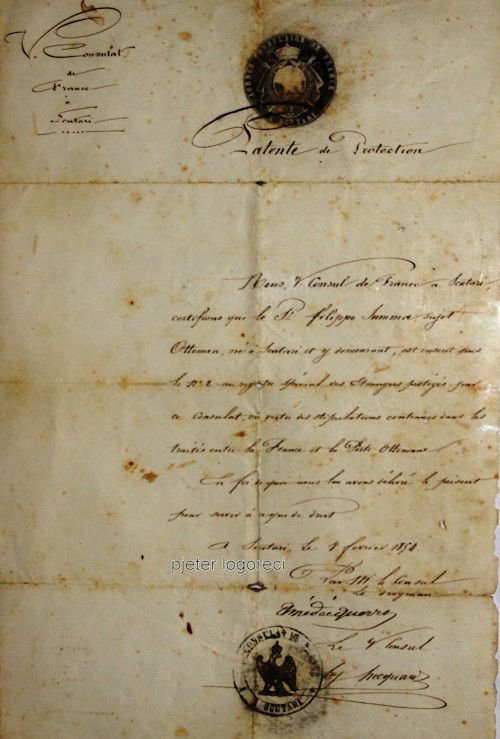 V. Consulat
de
France
à
Scutari
Patente de Protection
Nous, V. Consul de France à Scutari
certifions que le Sr. Filippo Summa sujet
Ottoman, né à Scutari et y demeurant, est inscrit sous
le No. 2 au registre spécial des Etrangers protégés par
ce Consulat, en vertu des stipulations contenues dans les
traités entre la France et la Porte Ottomane
En foi de quoi nous lui avons délivré le présent
pour servir à ce que de droit
A Scutari, le février 1854
pjeter logoreci
Par Mr le Consul
Le drogman
Le V. Consul
Hecquard
SCUTARI